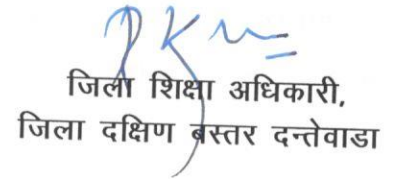 जिला शिक्षा अधिकारी,
जिला दक्षिण बस्तर दन्तेवाडा